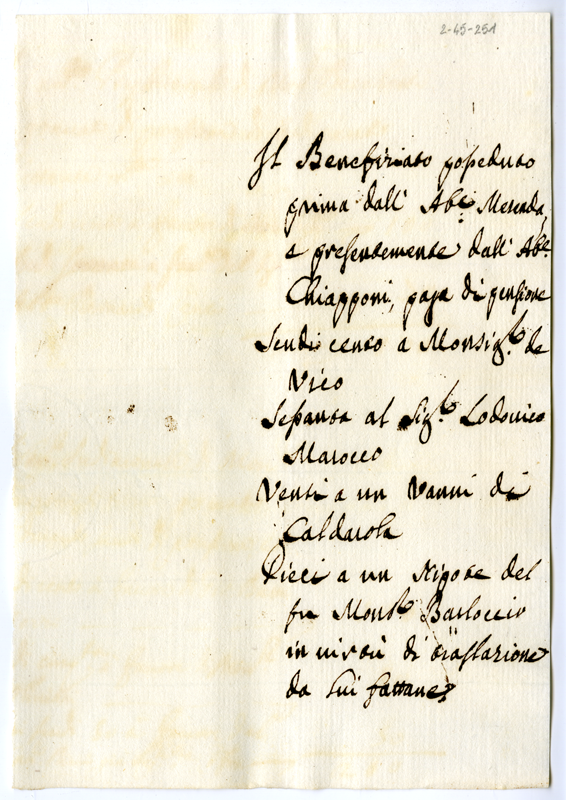 2-45-251
Il Benefiziato posseduto
prima dall' Abe. Merenda,
e presentemente dall' Abe.
Chiapponi, paga di pensione
Scudi cento a Monsigre. de
Vico
Sessanta al Sigre. Lodovico
Marocco
Venti a un Vanni di
Caldarola
Dieci a un Nipote del
fu Monsre. Barloccio
in virtù di traslazione
da lui fattane